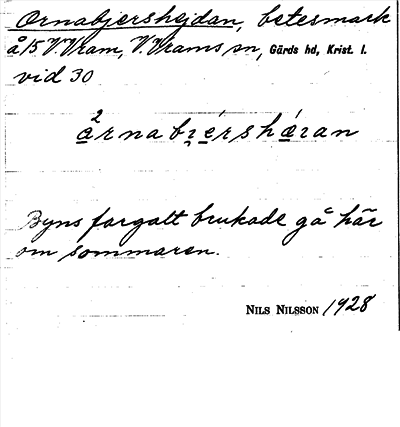 Ornabjershejdan, betesmark
å 15 V. Vram, V. Vrams sn, Gärds hd, Krist. l.
vid 30
Byns fargalt brukade gå här
om sommaren.
NILS NILSSON 1928